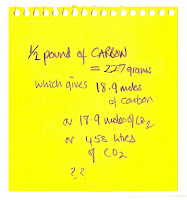 ½ pound of CARBON
= 227 grams
which gives 18.9 moles
of carbon
or 18.9 moles of CO2
or 453 litres
of CO2
??